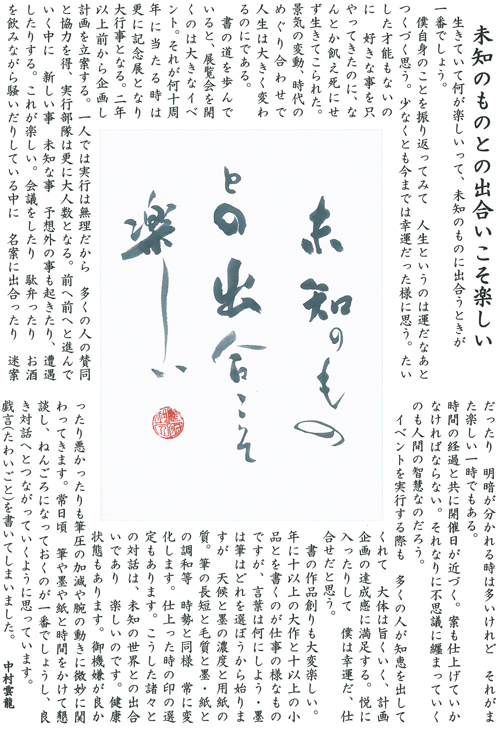 未知のものとの出合いこそ楽しい
生きていて何が楽しいって、未知のものに出合うときが
一番でしょう。
僕自身のことを振り返ってみて　人生というのは運だなあと
つくづく思う。少なくとも今までは幸運だった様に思う。たい
した才能もないの
に　好きな事を只
やってきたのに、な
んとか飢え死にせ
ず生きてこられた。
景気の変動、時代の
めぐり合わせで
人生は大きく変わ
るのにである。
書の道を歩んで
いると、展覧会を開
くのは大きなイベ
ント。それが何十周
年に当たる時は
更に記念展となり
大行事となる。二年
以上前から企画し
計画を立案する。一人では実行は無理だから　多くの人の賛同
と協力を得、実行部隊は更に大人数となる。前へ前へと進んで
いく中に　新しい事　未知な事　予想外の事も起きたり、遭遇
したりする。これが楽しい。会議をしたり　駄弁ったり　お酒
を飲みながら騒いだりしている中に　名案に出合ったり　迷案
未知のもの
との出合こそ
楽しい
だったり　明暗が分かれる時は多いけれど　それがま
た楽しい一時でもある。
時間の経過と共に開催日が近づく。案も仕上げていか
なければならない。それなりに不思議に纏まっていく
のも人間の智慧なのだろう。
イベントを実行する際も　多くの人が知恵を出して
くれて　大体は旨くいく、計画
企画の達成感に満足する。悦に
入ったりして　僕は幸運だ、仕
合せだと思う。
書の作品創りも大変楽しい。
年に十以上の大作と十以上の小
品とを書くのが仕事の様なもの
ですが、言葉は何にしよう・墨
は筆はどれを選ぼうから始りま
すが　天候と墨の濃度と用紙の
質。筆の長短と毛質と墨・紙と
の調和等　時勢と同様　常に変
化します。仕上った時の印の選
定もあります。こうした諸々と
の対話は、未知の世界との出合
いであり　楽しいのです。健康
状態もあります。御機嫌が良か
ったり悪かったりも筆圧の加減や腕の動きに微妙に関
わってきます。常日頃　筆や墨や紙と時間をかけて懇
談し、ねんごろになっておくのが一番でしょうし、良
き対話へとつながっていくように思っています。
戯言(たわいごと)を書いてしまいました。　中村雲龍